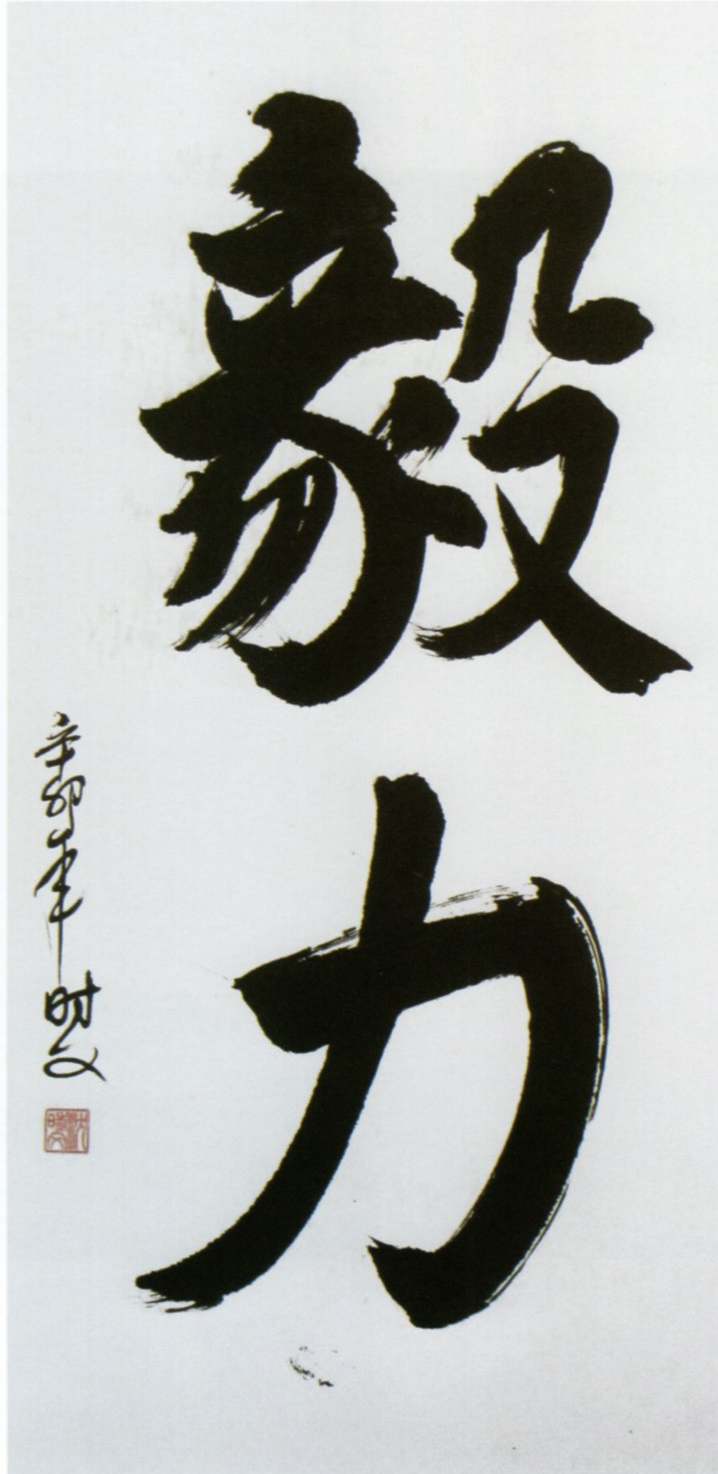 毅力
辛卯年时文